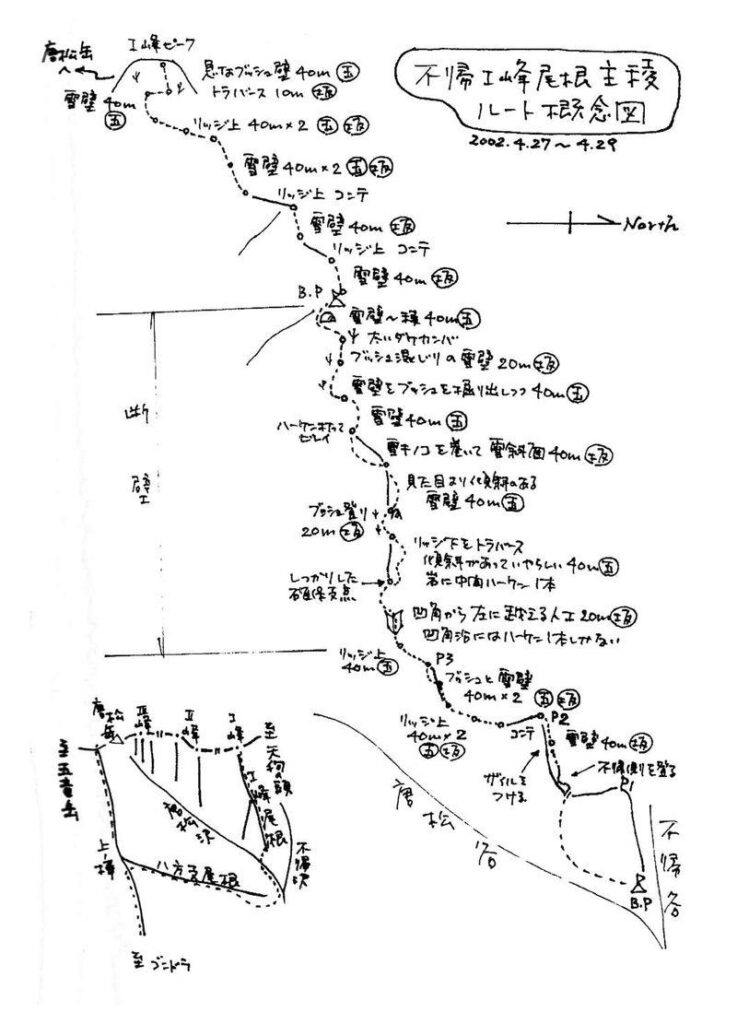 不帰Ⅰ峰尾根主稜
ルート概念図
2002.4.27〜4.29
North
唐松岳
Ⅰ峰ピーク
悪いブッシュ壁 40m 五
トラバース 10m 坂
雪壁 40m
五
リッジ上 40m×2 五 坂
雪壁 40m×2 五 坂
リッジ上 コンテ
雪壁 40m 坂
リッジ上 コンテ
雪壁 40m 坂
B.P
雪壁〜 40m 五
太いダケカンバ
ブッシュ混じりの雪壁 20m 坂
雪壁をブッシュを掘り出しつつ 40m 五
雪壁 40m 五
ハーケン打って
ビレイ
雪キノコを巻いて 雪斜面 40m 坂
見た目より傾斜のある
雪壁 40m 五
ブッシュ登り
20m 坂
リッジ下をトラバース
傾斜があっていやらしい 40m 五
岩に中間ハーケン1本
しっかりした
確保支点
凹角から左に越える人工 20m 坂
凹角沿にはハーケン1本しかない
断
壁
リッジ上
40m 五
P3
ブッシュと雪壁
40m×2 五 坂
リッジ上
40m×2
五 坂
コンテ
P2
雪壁 40m 坂
不帰側を登る
ザイルを
つける
P1
B.P
唐松谷
不帰谷
唐松岳
Ⅲ峰
Ⅱ峰
Ⅰ峰
至天狗の頭
至五竜岳
Ⅰ峰尾根
唐松沢
不帰沢
上ノ樺
八方支尾根
至ゴンドラ